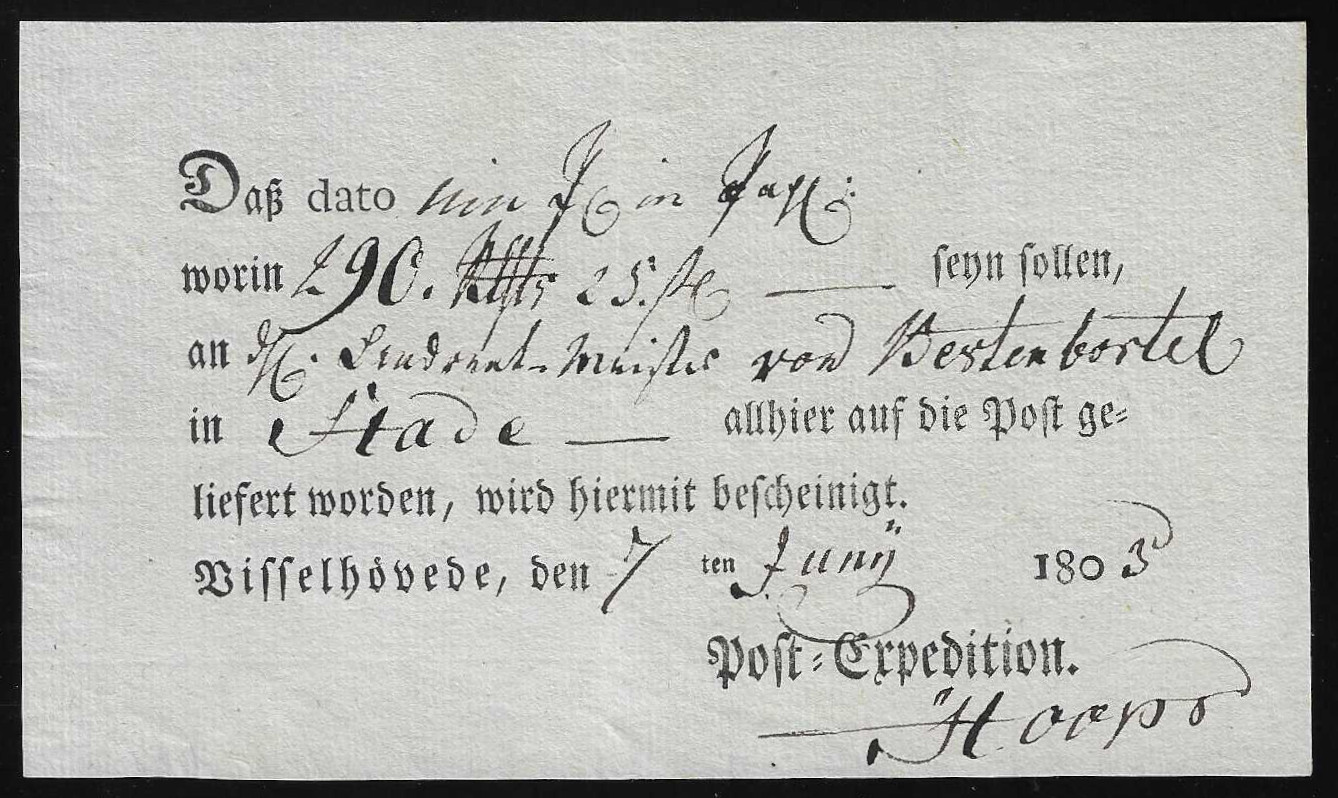 Daß dato ein in
worin 290. Rthlr 25. seyn sollen,
an Landrent-Meister von Bestenbostel
in Stade — allhier auf die Post ge=
liefert worden, wird hiermit bescheinigt.
Visselhövede, den 7 ten Junÿ 1803
Post=Expedition.
Hoops